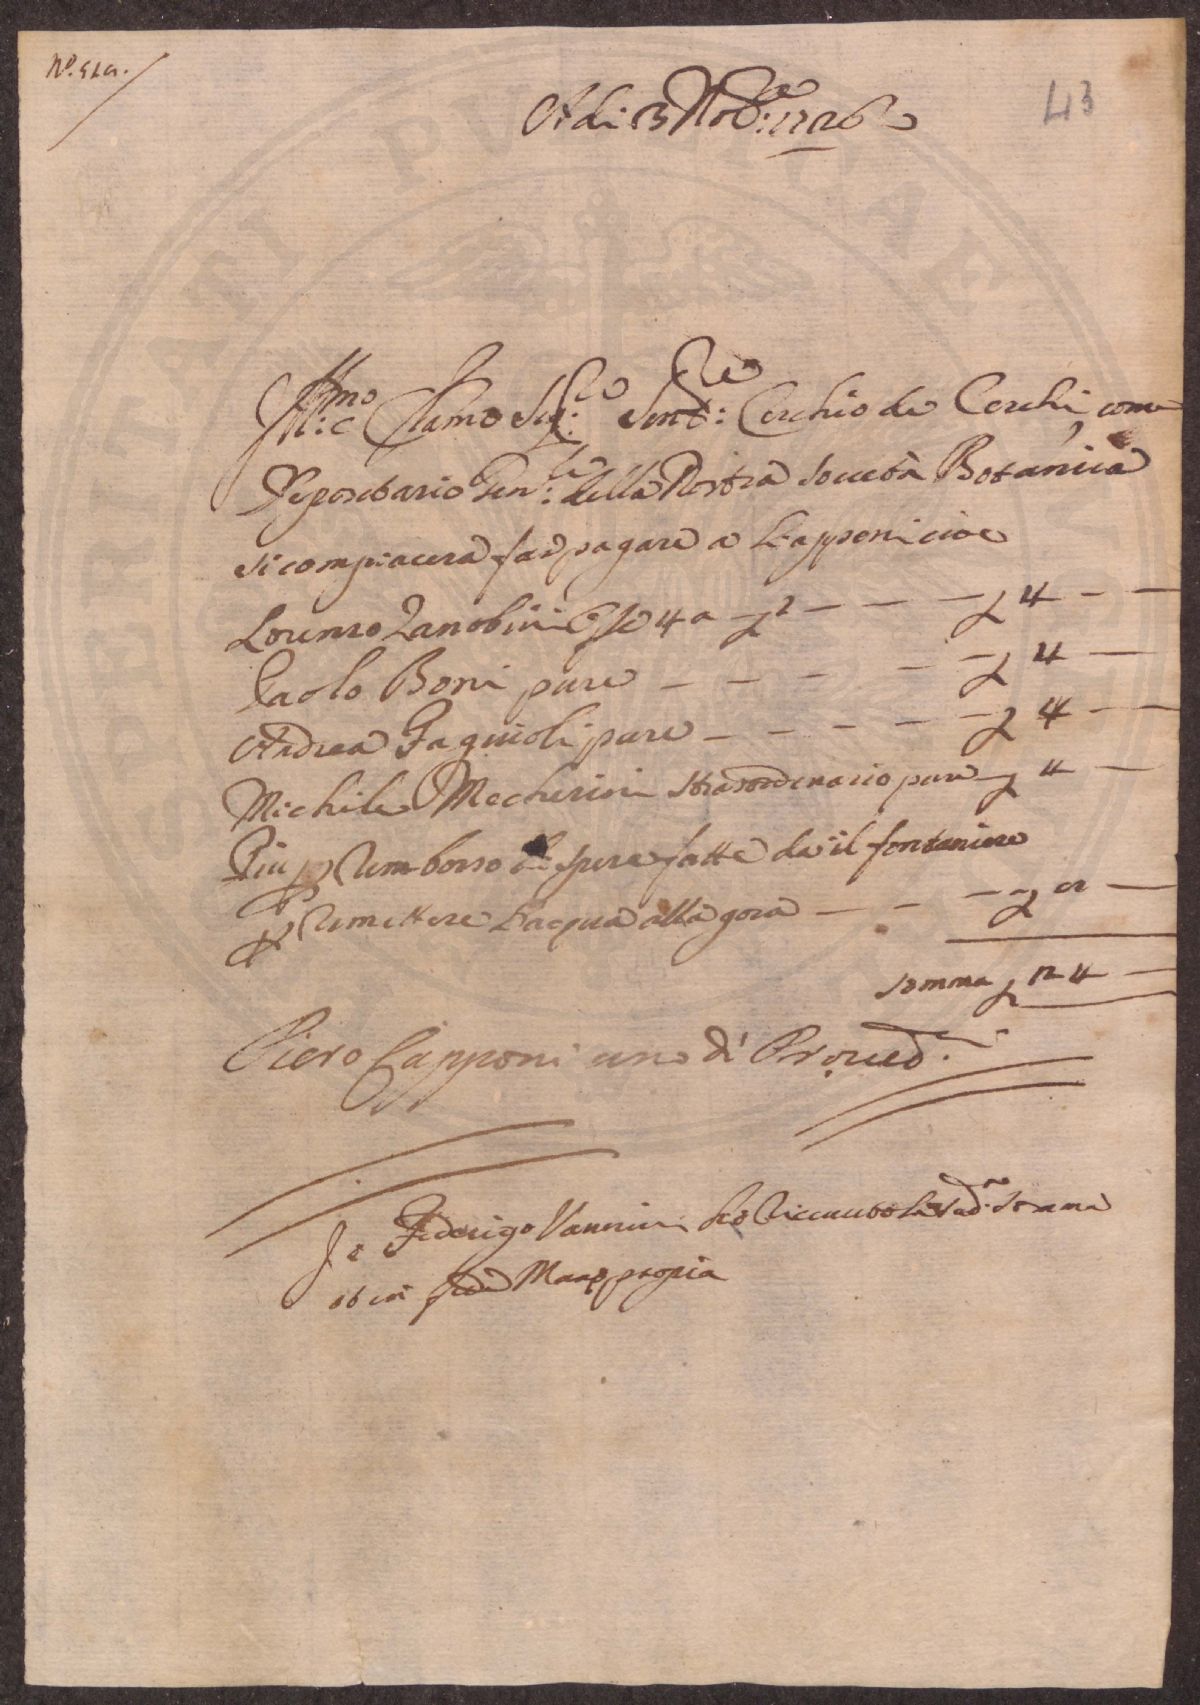 43
Adi 3 Nob:re 1726
Ill:mo Clarmo Sig:re Sen:re Cerchio de Cerchi come
Depositario Gen:le della Nostra Società Botanica
si compiacerà far pagare a L'apponi cioe
Lorenzo Zanobini 4 a £ 1 — — — £ 4 — —
Paolo Boni pure — — — — — £ 4 —
Andrea Fagnioli pure — — — — — £ 4 — —
Michele Mecherini strasordinario pure £ 4 —
Piu p rimborso di spese fatte da il fontaniere
p rimettere L'acqua alla gora — — — £ 8 —
somma £ 24 —
Piero Capponi uno di Proved.
Io Federigo Vannini ho riceuuto la sud.a somma
et in fede Mano propria